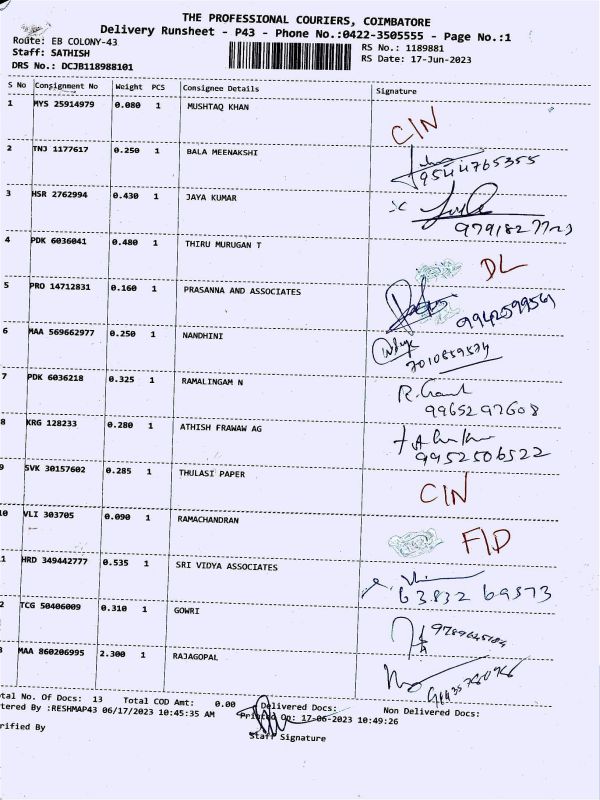 THE PROFESSIONAL COURIERS, COIMBATORE
Delivery Runsheet - P43 - Phone No.:0422-3505555 - Page No.:1
Route: EB COLONY-43
RS No.: 1189881
Staff: SATHISH
RS Date: 17-Jun-2023
DRS No.: DCJB118988101
S No Consignment No Weight PCS Consignee Details Signature
1 MYS 25914979 0.080 1 MUSHTAQ KHAN
CIN
2 TNJ 1177617 0.250 1 BALA MEENAKSHI
9544765355
3 HSR 2762994 0.430 1 JAYA KUMAR
4 PDK 6036041 0.480 1 THIRU MURUGAN T
DL
5 PRO 14712831 0.160 1 PRASANNA AND ASSOCIATES
6 MAA 569662977 0.250 1 NANDHINI
7010859574
7 PDK 6036218 0.325 1 RAMALINGAM N
9965297608
8 KRG 128233 0.280 1 ATHISH FRAWAW AG
9952506522
9 SVK 30157602 0.285 1 THULASI PAPER
CIN
10 VLI 303705 0.090 1 RAMACHANDRAN
F/D
1 HRD 349442777 0.535 1 SRI VIDYA ASSOCIATES
63832 69573
2 TCG 50406009 0.310 1 GOWRI
3 MAA 860206995 2.300 1 RAJAGOPAL
otal No. Of Docs: 13 Total COD Amt: 0.00 Delivered Docs: Non Delivered Docs:
tered By :RESHMAP43 06/17/2023 10:45:35 AM Printed On: 17-06-2023 10:49:26
Staff Signature
rified By